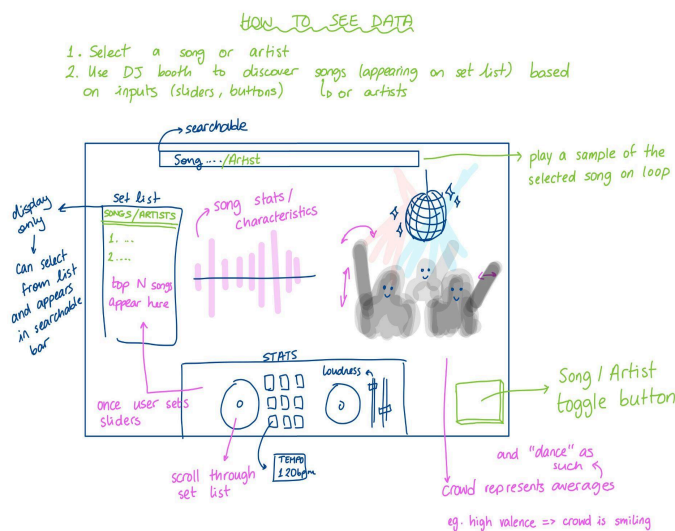 HOW TO SEE DATA
1. Select a song or artist
2. Use DJ booth to discover songs (appearing on set list) based
on inputs (sliders, buttons) ↳ or artists
searchable
Song .../Artist
play a sample of the
selected song on loop
set list
SONGS/ARTISTS
1. ...
2. ...
top N songs
appear here
display
only
can select
from list
and appears
in searchable
bar
song stats/
characteristics
STATS
loudness
once user sets
sliders
scroll through
set list
TEMPO
120bpm
Song / Artist
toggle button
and "dance" as
such
crowd represents averages
eg. high valence => crowd is smiling